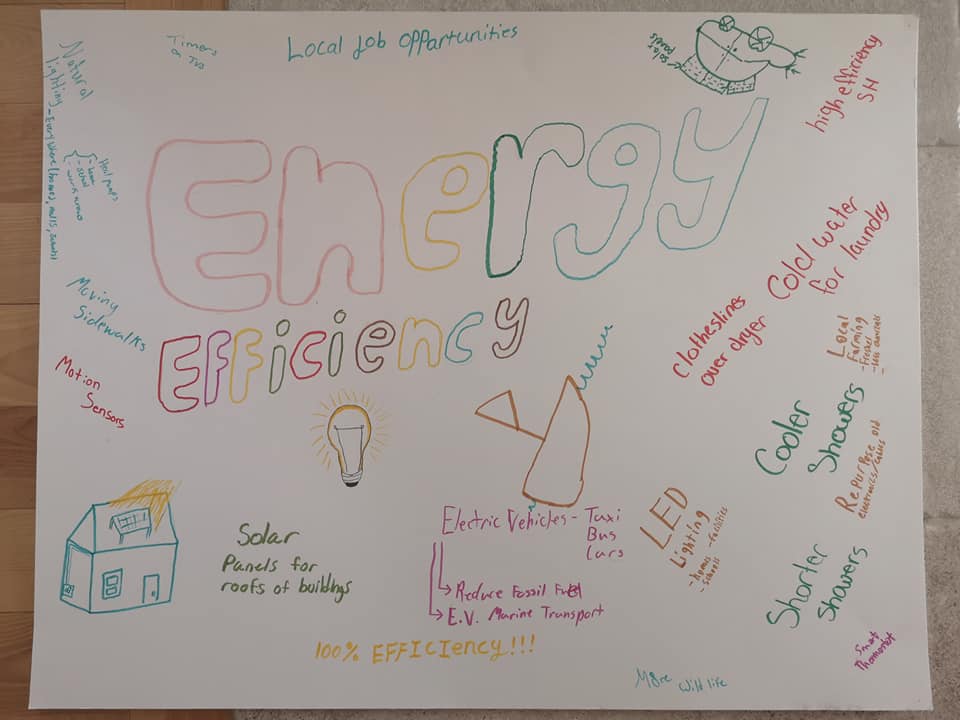 Local Job Opportunities
Timers
on TVs
Natural
lighting - Everywhere (homes, malls, schools)
Heat pumps
- home
- school
Solar
panels
high efficiency
SH
Energy
Efficiency
Moving
Sidewalks
Motion
Sensors
Cold water
for laundry
Clotheslines
over dryer
Local
Farming
- Fresher
- less
Cooler
Showers
Repurpose old
electronics/
LED
Lighting
- homes - facilities
- schools
Shorter
Showers
Smart
Thermostat
Solar
Panels for
roofs of buildings
Electric Vehicles - Taxi
Bus
Cars
Reduce Fossil Fuel
E.V. Marine Transport
100% EFFICIency!!!
More Wild life